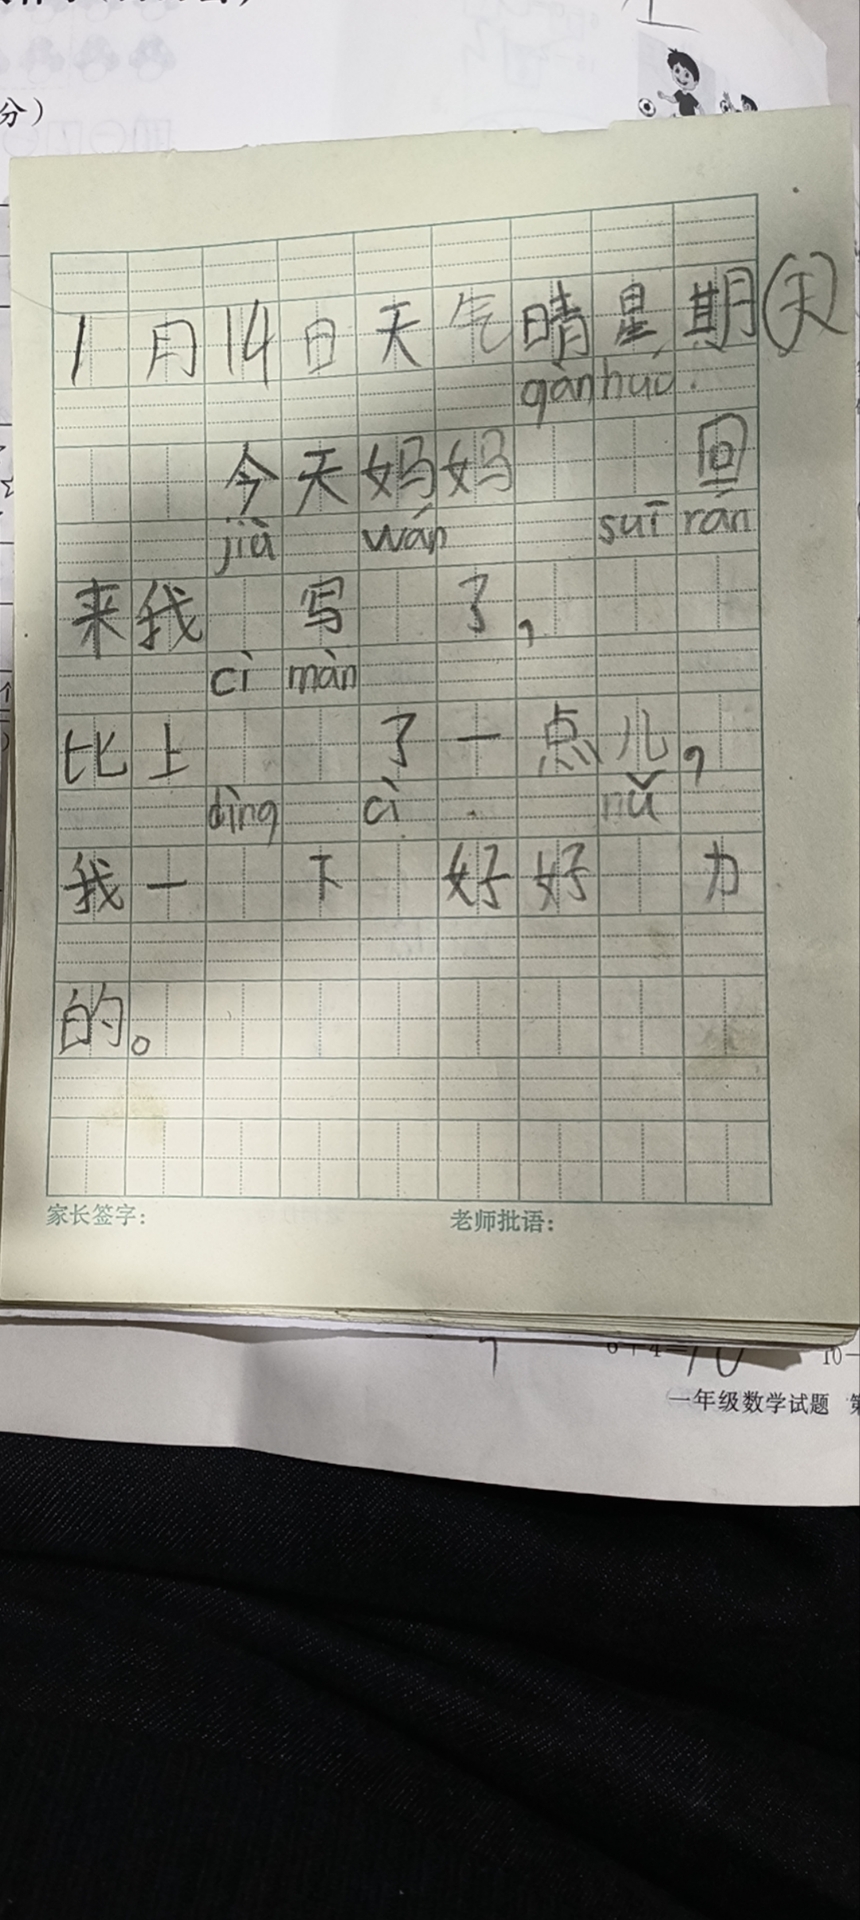 分）
1月14日天气晴星期天
gànhuó
今天妈妈回
jiù wán suī rán
来我写了，
cì màn
比上了一点儿，
dìng cì nǔ
我一下好好力
的。
家长签字： 老师批语：
6+4=10 10-
一年级数学试题 第